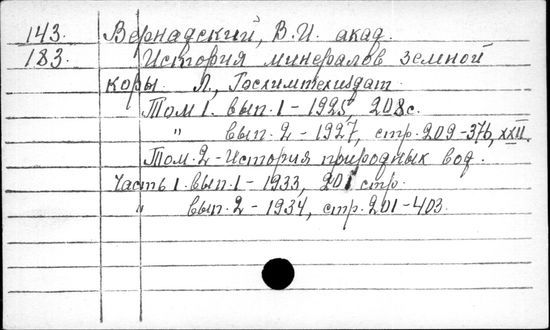 143. Вернадский, В.И. акад.
183. История минералов земной
коры. Л., Госхимтехиздат.
Том 1. вып. 1 - 1925, 208 с.
" вып. 2 - 1927, стр. 209-376, XXII.
Том. 2 - История природных вод.
Часть 1. вып. 1 - 1933, 201 стр.
" вып. 2 - 1934, стр. 201-403.